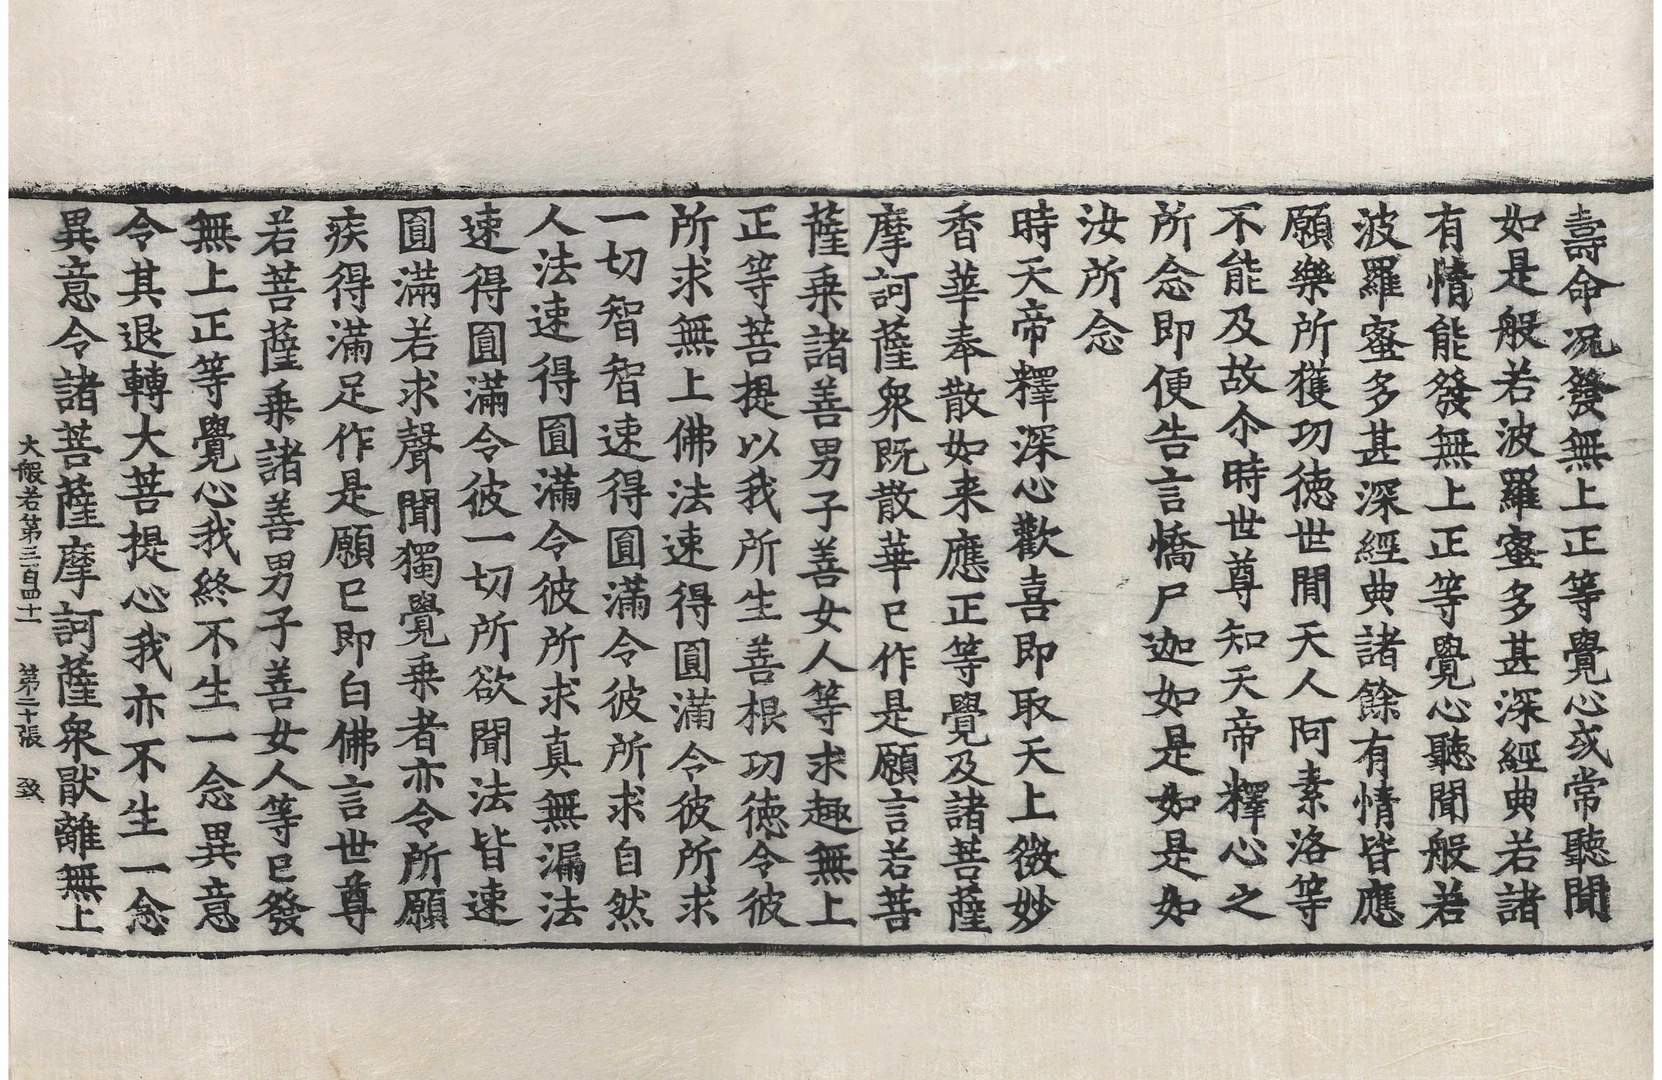 壽命况發無上正等覺心或常聽聞
如是般若波羅蜜多甚深經典若諸
有情能發無上正等覺心聽聞般若
波羅蜜多甚深經典諸餘有情皆應
願樂所獲功德世間天人阿素洛等
不能及故尒時世尊知天帝釋心之
所念即便告言憍尸迦如是如是如
汝所念
時天帝釋深心歡喜即取天上微妙
香華奉散如来應正等覺及諸菩薩
摩訶薩衆既散華已作是願言若菩
薩乗諸善男子善女人等求趣無上
正等菩提以我所生善根功德令彼
所求無上佛法速得圓滿令彼所求
一切智智速得圓滿令彼所求自然
人法速得圓滿令彼所求真無漏法
速得圓滿令彼一切所欲聞法皆速
圓滿若求聲聞獨覺乗者亦令所願
疾得滿足作是願已即白佛言世尊
若菩薩乗諸善男子善女人等已發
無上正等覺心我終不生一念異意
令其退轉大菩提心我亦不生一念
異意令諸菩薩摩訶薩衆猒離無上
大般若第三百四十二 第二十張 致